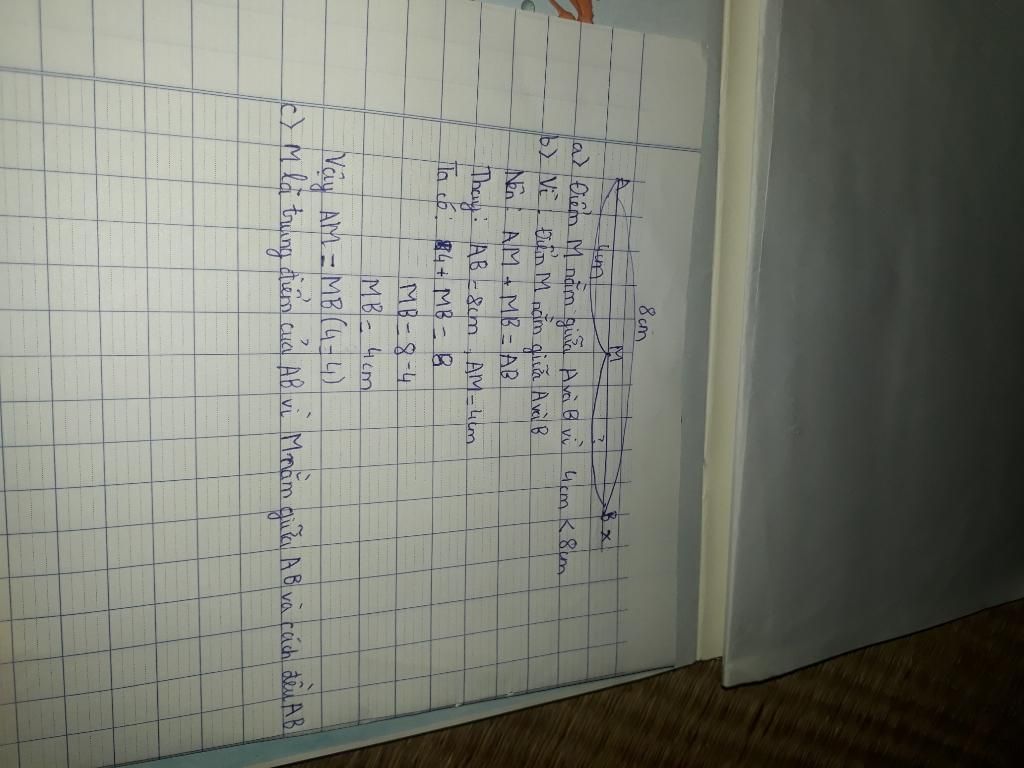 8cm
A 4cm M ? B x
a) Điểm M nằm giữa A và B vì 4cm < 8cm
b) Vì: Điểm M nằm giữa A và B
Nên: AM + MB = AB
Thay: AB = 8cm, AM = 4cm
Ta có: 4 + MB = 8
MB = 8 - 4
MB = 4cm
Vậy AM = MB (4 = 4)
c) M là trung điểm của AB vì M nằm giữa AB và cách đều AB